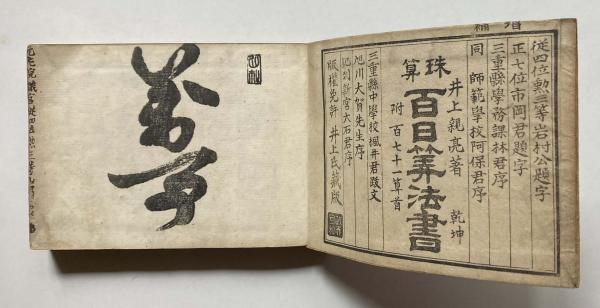 増補
従四位勲三等岩村公題字
正七位市岡君題字
三重縣學務課林君序
同 師範學校阿保君序
井上親亮著 乾坤
珠算
百日筭法書
附 百七十一算首
三重縣中學校楓井君跋文
旭川大賀先生序
紀列新宮大石君序
版權免許 井上氏藏版